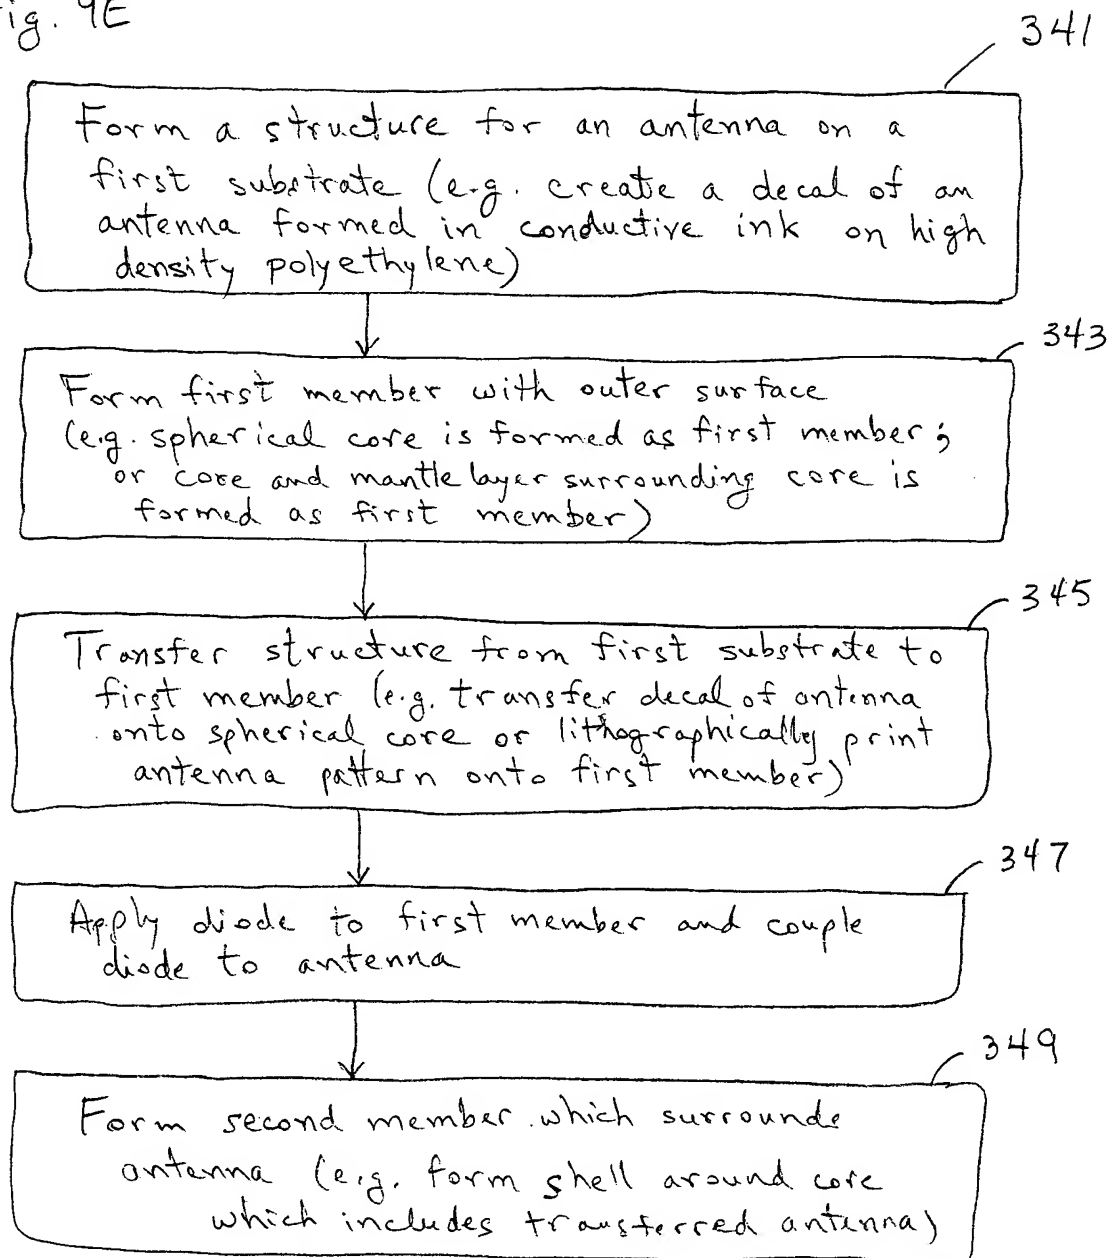 Fig. 9E
341
Form a structure for an antenna on a
first substrate (e.g. create a decal of an
antenna formed in conductive ink on high
density polyethylene)
343
Form first member with outer surface
(e.g. spherical core is formed as first member;
or core and mantle layer surrounding core is
formed as first member)
345
Transfer structure from first substrate to
first member (e.g. transfer decal of antenna
onto spherical core or lithographically print
antenna pattern onto first member)
347
Apply diode to first member and couple
diode to antenna
349
Form second member which surrounds
antenna (e.g. form shell around core
which includes transferred antenna)